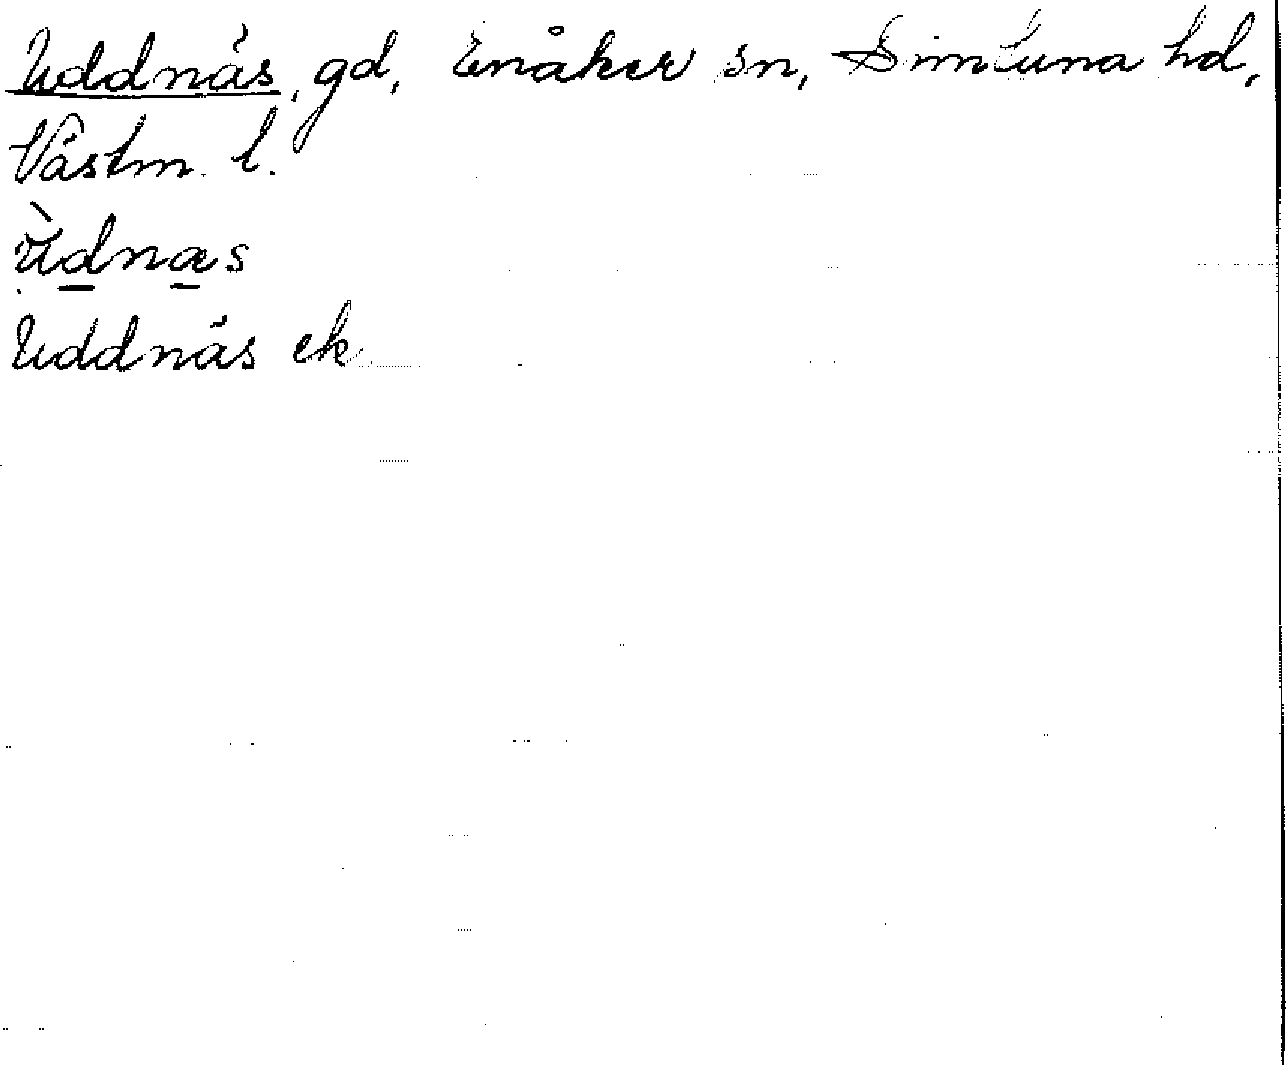 Uddnäs, gd, Enåker sn, Simtuna hd,
Västm. l.
ùdnæs
Uddnäs ek